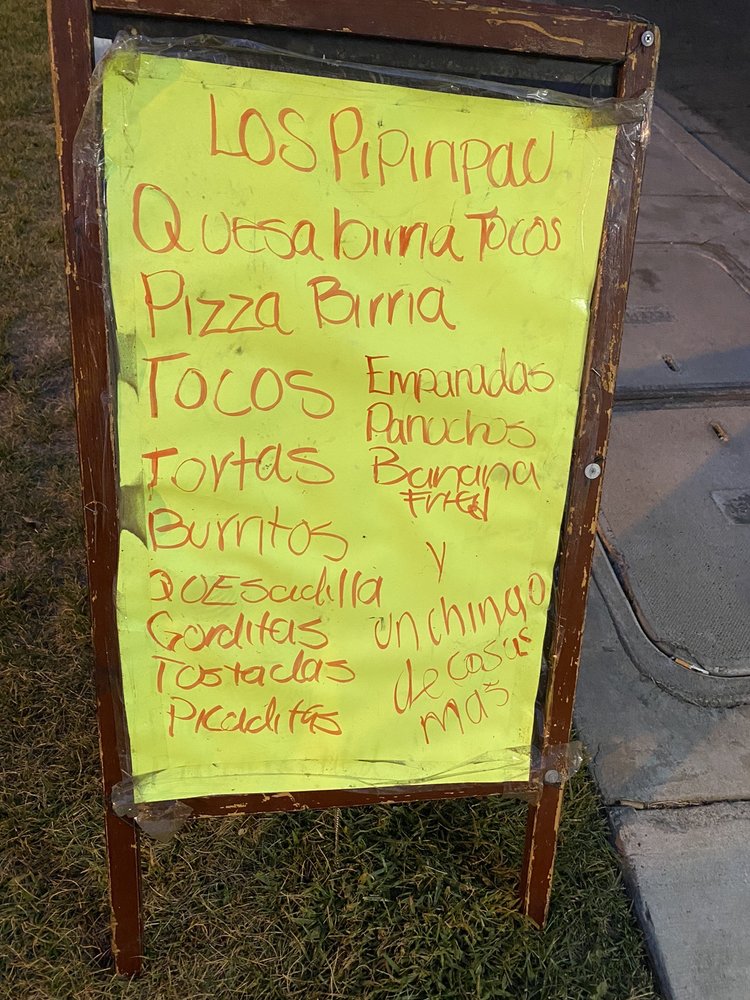 LOS PiPiNpaU
QUESabirria Tocos
Pizza Birria
Tocos
Tortas
Burritos
QUESadilla
Gorditas
Tostadas
Picaditas
Empanadas
Panuchos
Banana
Frita
y
un chingo
de cosas
mas